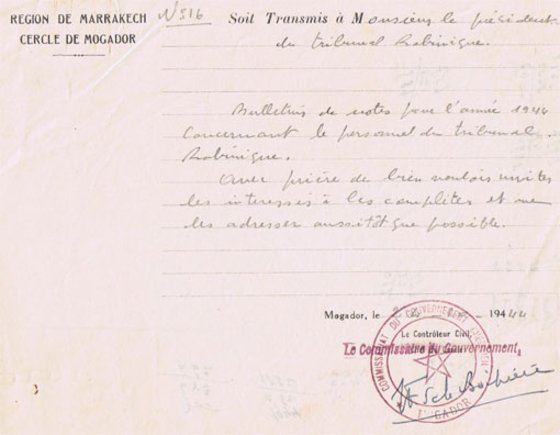 REGION DE MARRAKECH
CERCLE DE MOGADOR
N° 516
Soit Transmis à Monsieur le président
du tribunal Rabinique.
Bulletins de notes pour l'année 1944
Concernant le personnel du tribunal
Rabinique.
Avec prière de bien vouloir inviter
les interessés à les compléter et me
les adresser aussitôt que possible.
Mogador, le 1944
Le Contrôleur Civil,
Le Commissaire du Gouvernement,
COMMISSARIAT DU GOUVERNEMENT CHERIFIEN
MOGADOR